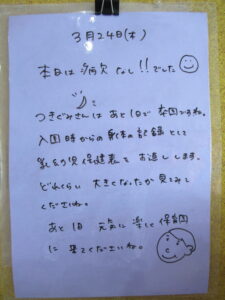 3月24日(木)
本日は病欠なし!!でした
つきぐみさんはあと1日で卒園ですね。
入園時からの身体の記録として
乳幼児保健表をお返しします。
どれくらい大きくなったか見てみて
くださいね。
あと1日元気に楽しく保育園
に来てくださいね。